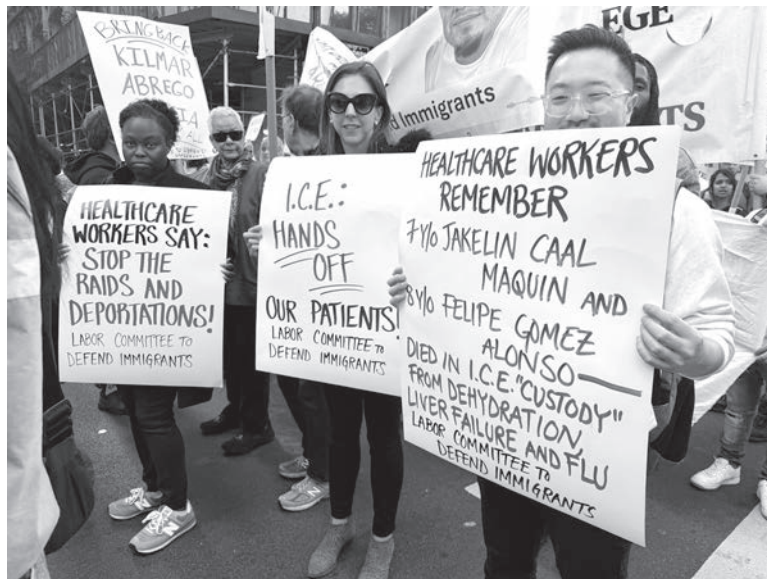 BRING BACK
KILMAR
ABREGO
d Immigrants
EGE
TS
HEALTHCARE
WORKERS SAY:
STOP THE
RAIDS AND
DEPORTATIONS!
LABOR COMMITTEE TO
DEFEND IMMIGRANTS
I.C.E.:
HANDS
OFF
OUR PATIENTS!
LABOR COMMITTEE TO
DEFEND IMMIGRANTS
HEALTHCARE WORKERS
REMEMBER
7 Y/O JAKELIN CAAL
MAQUIN AND
8 Y/O FELIPE GOMEZ
ALONSO—
DIED IN I.C.E. "CUSTODY"
FROM DEHYDRATION,
LIVER FAILURE AND FLU
LABOR COMMITTEE TO
DEFEND IMMIGRANTS